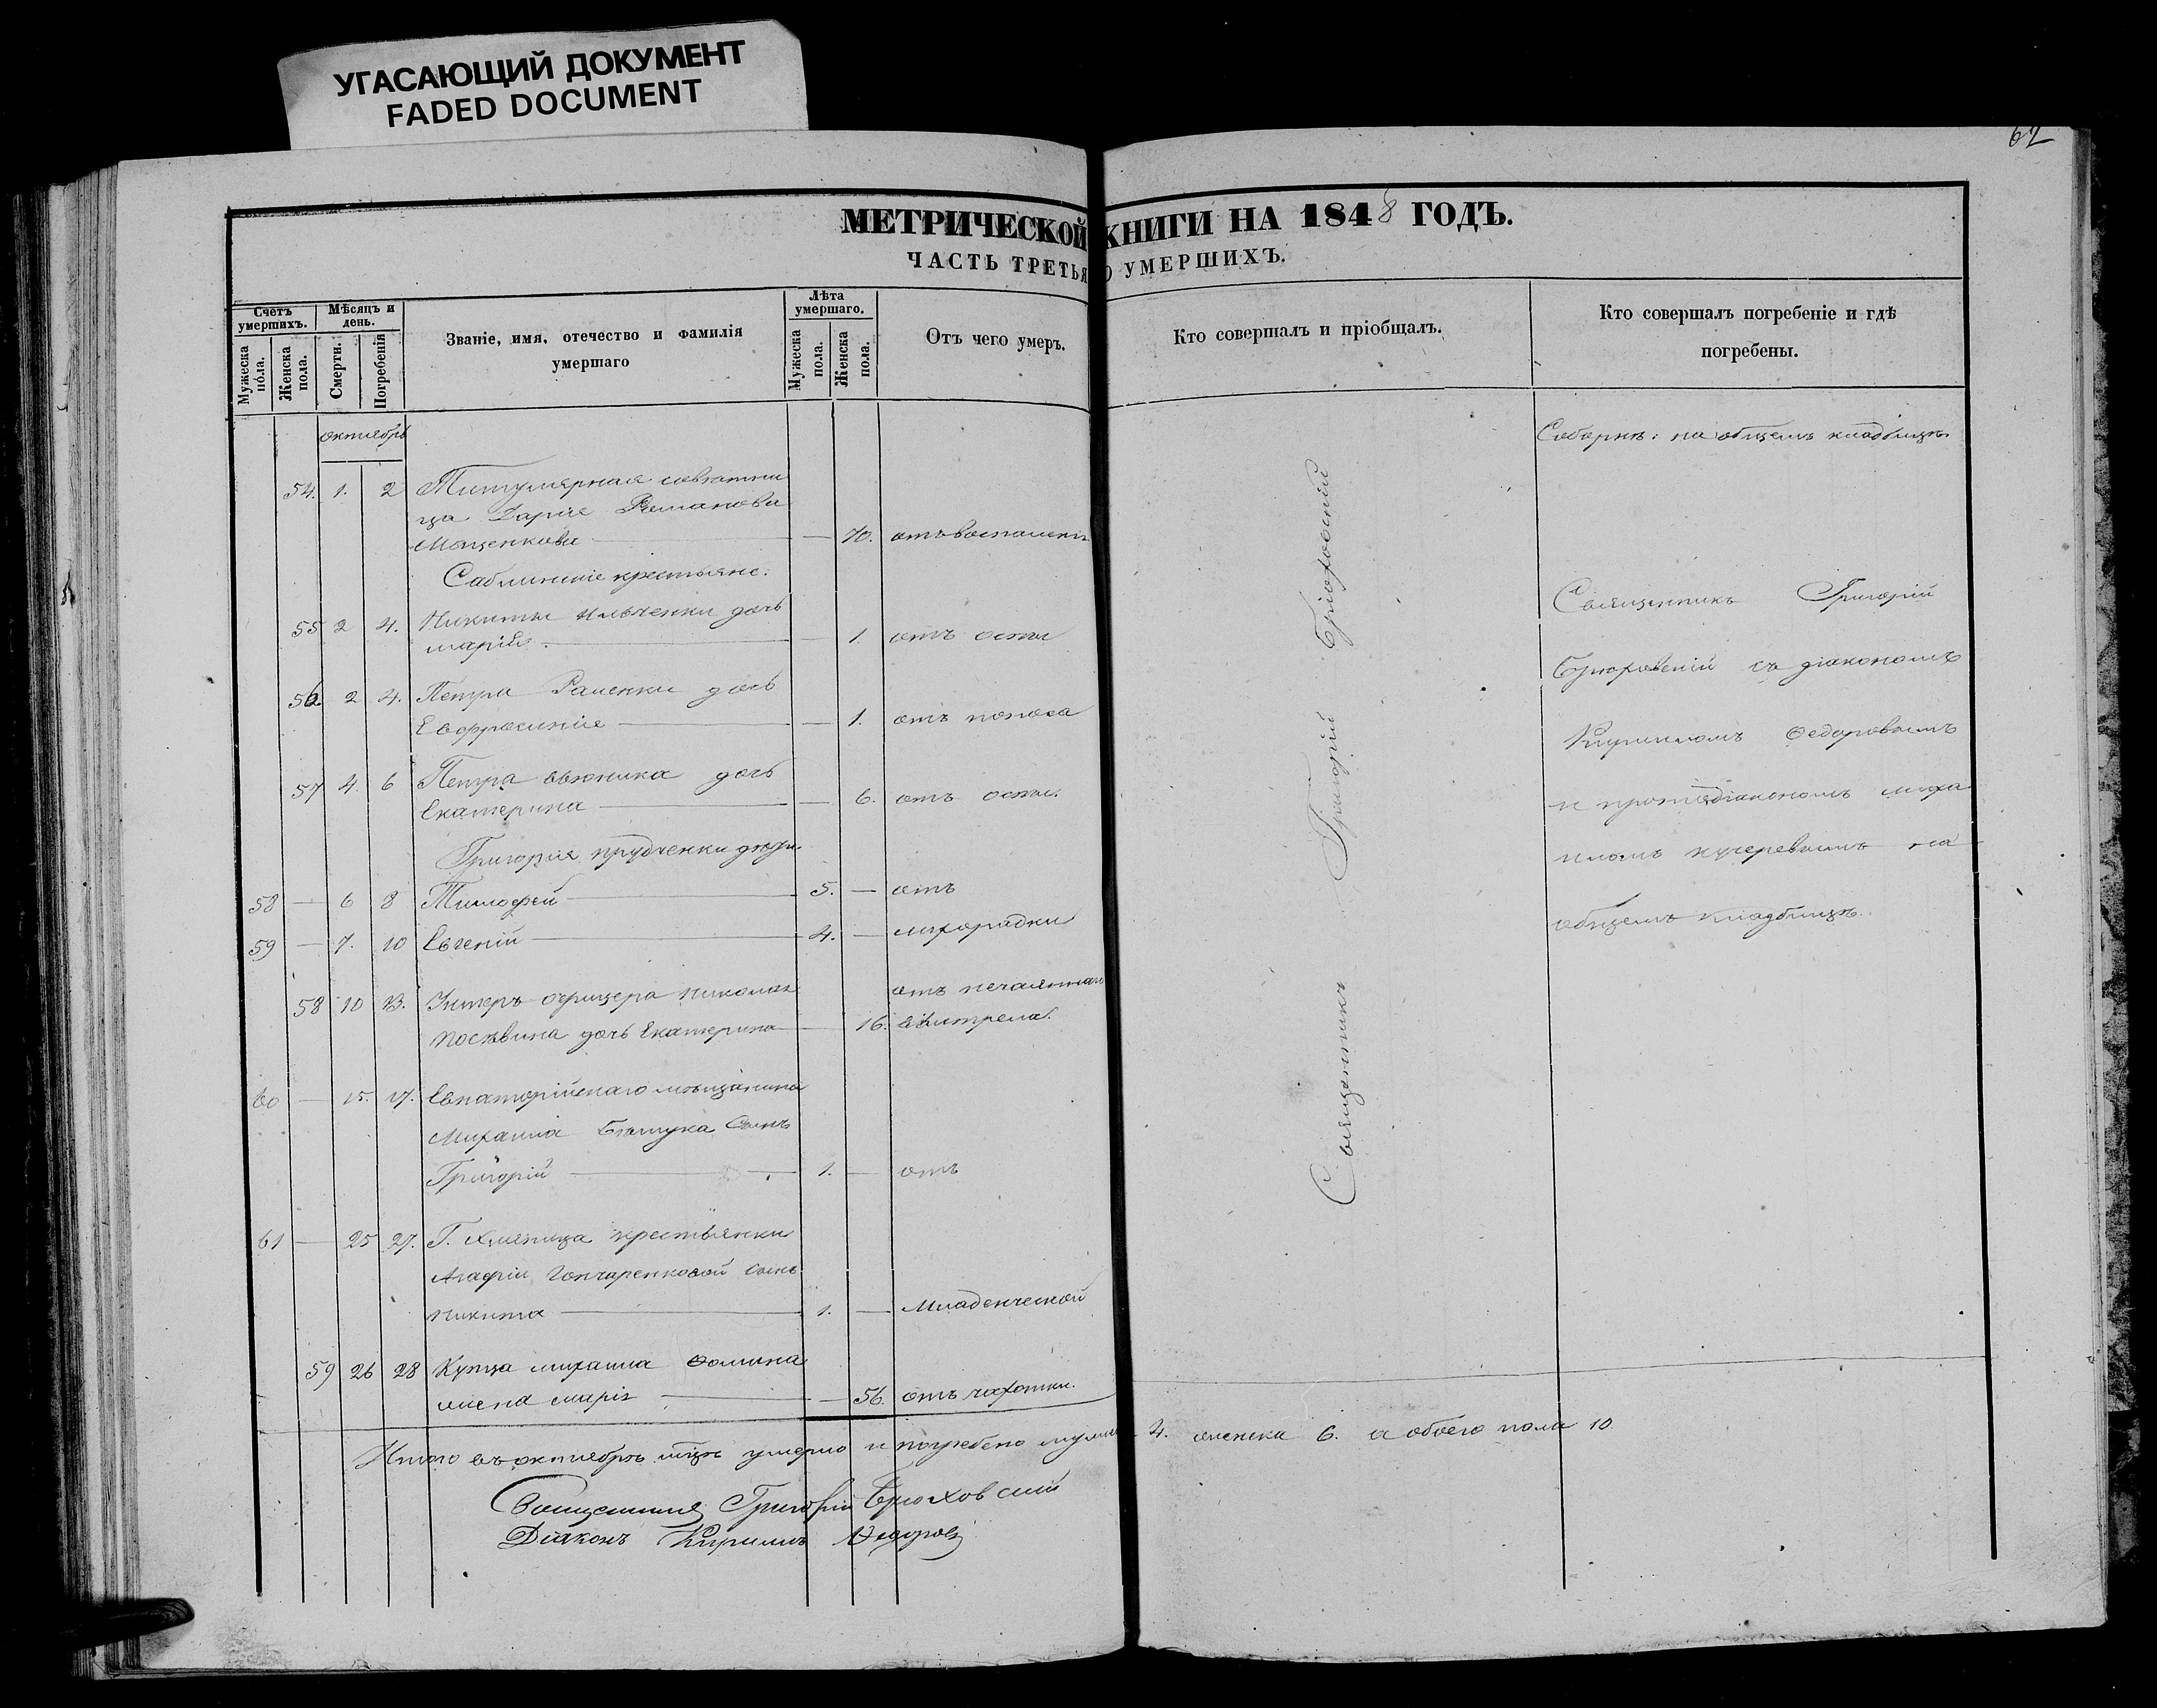 УГАСАЮЩИЙ ДОКУМЕНТ
FADED DOCUMENT
62
МЕТРИЧЕСКОЙ КНИГИ НА 1848 ГОДЪ.
ЧАСТЬ ТРЕТЬЯ О УМЕРШИХЪ.
Счетъ умершихъ.
Мужеска пола.
Женска пола.
Мѣсяцъ и день.
Смерти.
Погребенія
Званіе, имя, отечество и фамилія умершаго
Лѣта умершаго.
Мужеска пола.
Женска пола.
Отъ чего умеръ.
Кто совершалъ и пріобщалъ.
Кто совершалъ погребеніе и гдѣ погребены.
октябрь
Соборнѣ: на общемъ кладбищѣ
54. 1. 2 Титулярная совѣтни
ца Дарія Романова
— 70. отъ воспаленія
Саблинскіе крестьяне:
55 2 4. Никиты Ильченки дочь
марія — — 1. отъ оспы
56 2 4. Петра дочь
Евфросинія — — 1. отъ поноса
57 4. 6 Петра вьюника дочь
Екатерина — — 6. отъ оспы.
Григорія прудченки дѣти
58 — 6 8 Тимофей — 5. — отъ
59 — 7. 10 Евгеній — 4. — лихорадки
58 10 13. Унтеръ офицера николая
посѣвина дочь Екатерина — 16. отъ нечаяннаго
выстрела.
60 — 15. 17. Евпаторійскаго мѣщанина
Михаила сынъ
Григорій — 1. — отъ
61 — 25 27. Г. крестьянки
Агафіи Гончаренковой сынъ
никита — 1. — Младенческой
59 26 28 Купца михаила Фомина
жена марія — — 56. отъ чахотки.
Священникъ Григорій Брюховскій
Священникъ Григорій
Брюховскій съ діакономъ
Кирилломъ Федоровымъ
и протодіакономъ миха
иломъ кучеревымъ на
общемъ кладбищѣ.
Итого въ октябрѣ мцѣ умерло и погребено мужеска 4. женска 6. а обоего пола 10.
Священникъ Григорій Брюховскій
Діаконъ Кириллъ Федоровъ